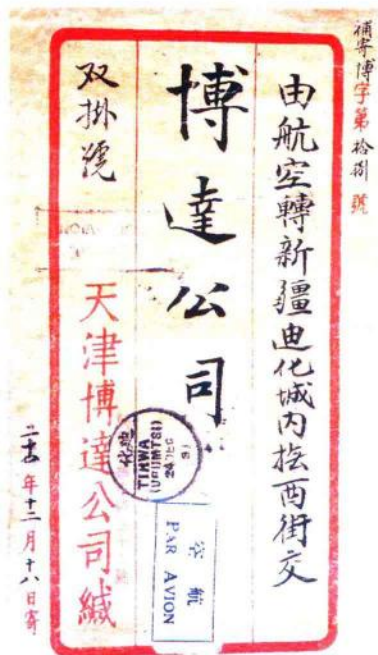 補寄博字第拾捌號
由航空轉新疆迪化城内抚西街交
博達公司
双掛號
天津博達公司緘
年十二月十八日寄
TIHWA
(URUMTSI)
24 DEC
空航
PAR AVION